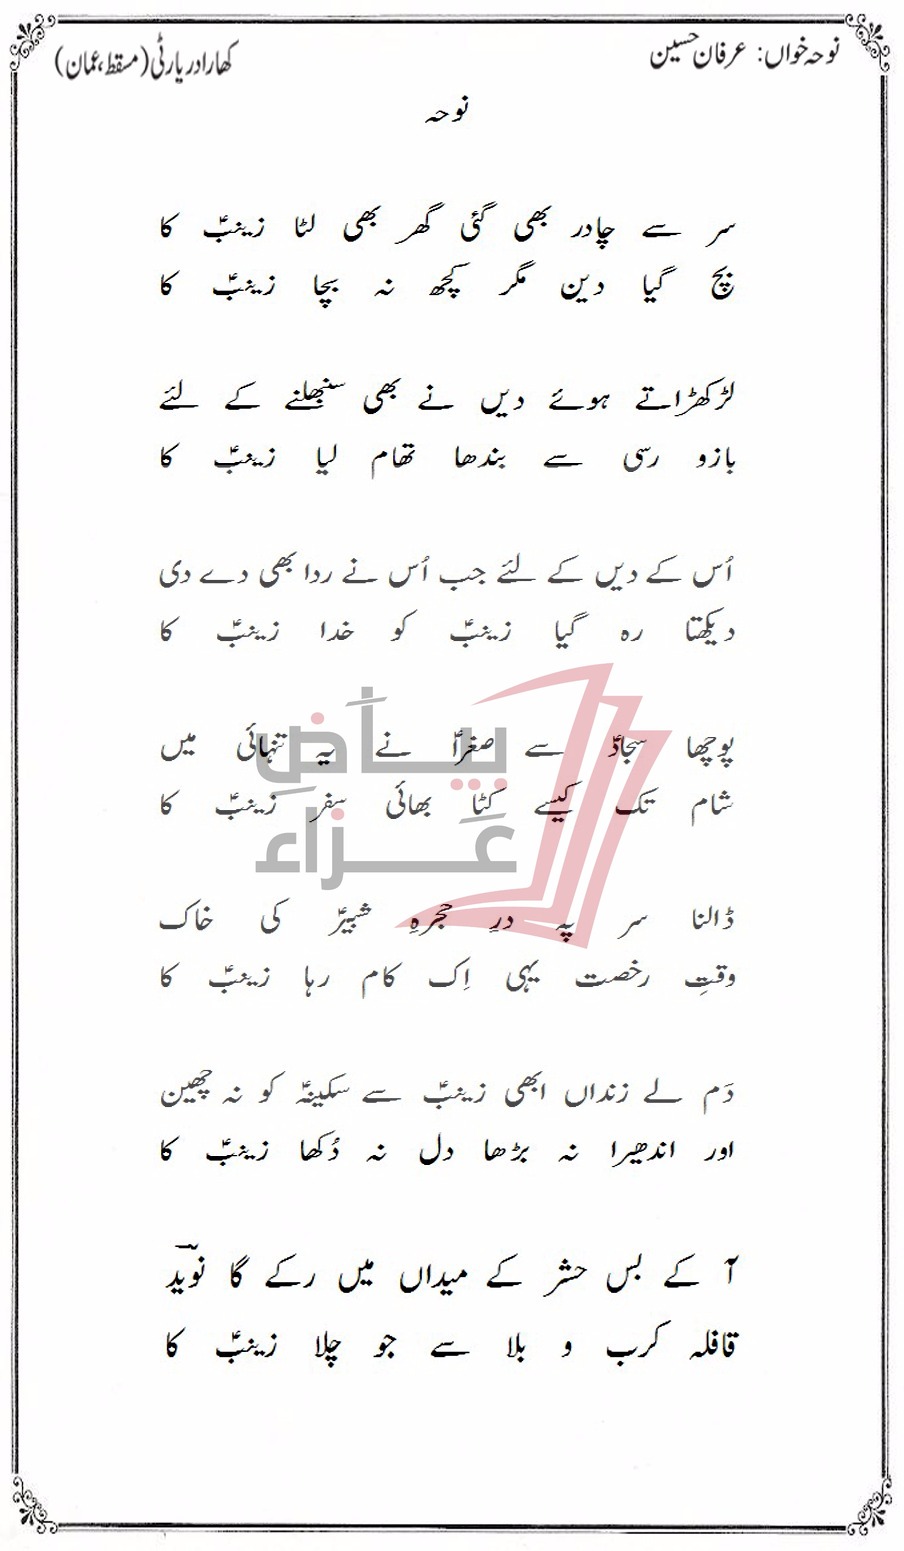 نوحہ خواں: عرفان حسین
کھارادر پارٹی (مسقط، عمان)
نوحہ
سر سے چادر بھی گئی گھر بھی لٹا زینبؑ کا
بچ گیا دین مگر کچھ نہ بچا زینبؑ کا
لڑکھڑاتے ہوئے دیں نے بھی سنبھلنے کے لئے
بازو رسی سے بندھا تھام لیا زینبؑ کا
اُس کے دیں کے لئے جب اُس نے ردا بھی دے دی
دیکھتا رہ گیا زینبؑ کو خدا زینبؑ کا
پوچھا سجادؑ سے صغراؑ نے یہ تنہائی میں
شام تک کیسے کٹا بھائی سفر زینبؑ کا
بیاضِ
عزاء
ڈالنا سر پہ درِ حجرہِ شبیرؑ کی خاک
وقتِ رخصت یہی اِک کام رہا زینبؑ کا
دَم لے زنداں ابھی زینبؑ سے سکینہؑ کو نہ چھین
اور اندھیرا نہ بڑھا دل نہ دُکھا زینبؑ کا
آ کے بس حشر کے میداں میں رکے گا نویدؔ
قافلہ کرب و بلا سے جو چلا زینبؑ کا